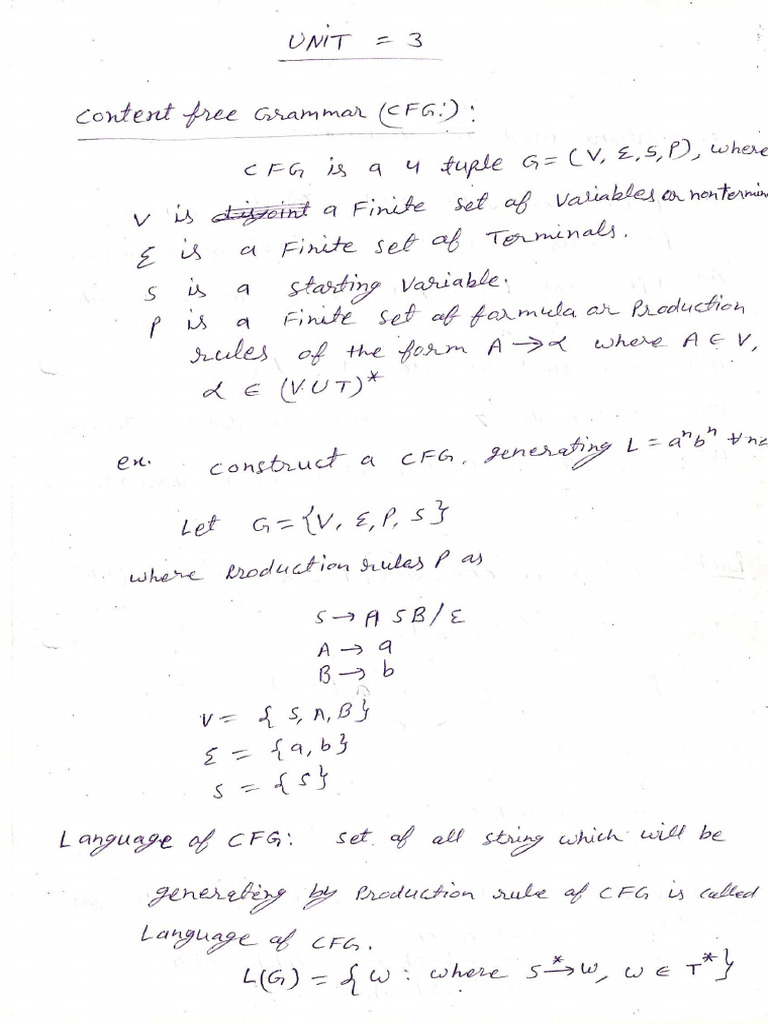 UNIT = 3
Content free Grammar (CFG:) :
CFG is a 4 tuple G = (V, Σ, S, P), where
V is disjoint a Finite set of Variables or nontermin
Σ is a Finite set of Terminals.
S is a starting Variable.
P is a Finite set of formula or Production
rules of the form A → α where A ∈ V,
α ∈ (V∪T)*
ex. construct a CFG. generating L = aⁿbⁿ ∀n≥
Let G = {V, Σ, P, S}
where Production rules P as
S → A SB / Ɛ
A → a
B → b
V = { S, A, B}
Σ = {a, b}
S = {S}
Language of CFG: set of all string which will be
generating by Production rule of CFG is called
Language of CFG.
L(G) = { W : where S *→ W, W ∈ T*}